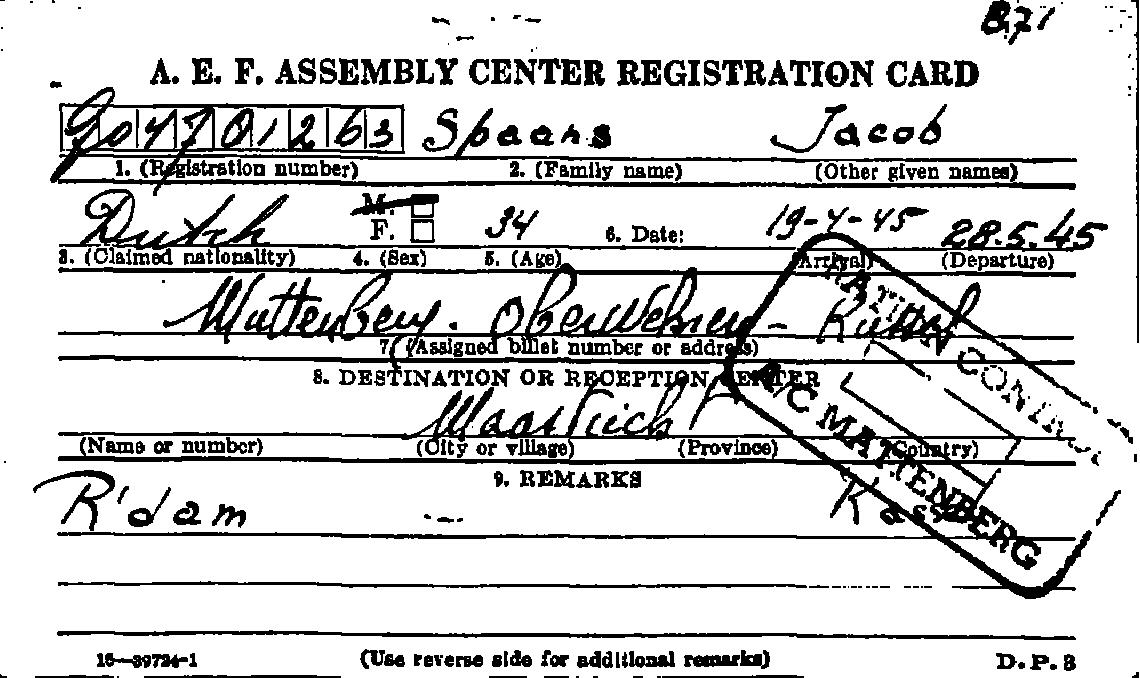 871
A. E. F. ASSEMBLY CENTER REGISTRATION CARD
G04701263 Spaans Jacob
1. (Registration number) 2. (Family name) (Other given names)
Dutch M. F. 34 6. Date: 19-4-45 28.5.45
3. (Claimed nationality) 4. (Sex) 5. (Age) (Arrival) (Departure)
Mattenberg. Oberzwehren - Kassel
7. (Assigned billet number or address)
8. DESTINATION OR RECEPTION CENTER
Maastricht
(Name or number) (City or village) (Province) (Country)
9. REMARKS
R'dam
RATION CONTROL
A/C MATTENBERG
16—39724-1 (Use reverse side for additional remarks) D. P. 3